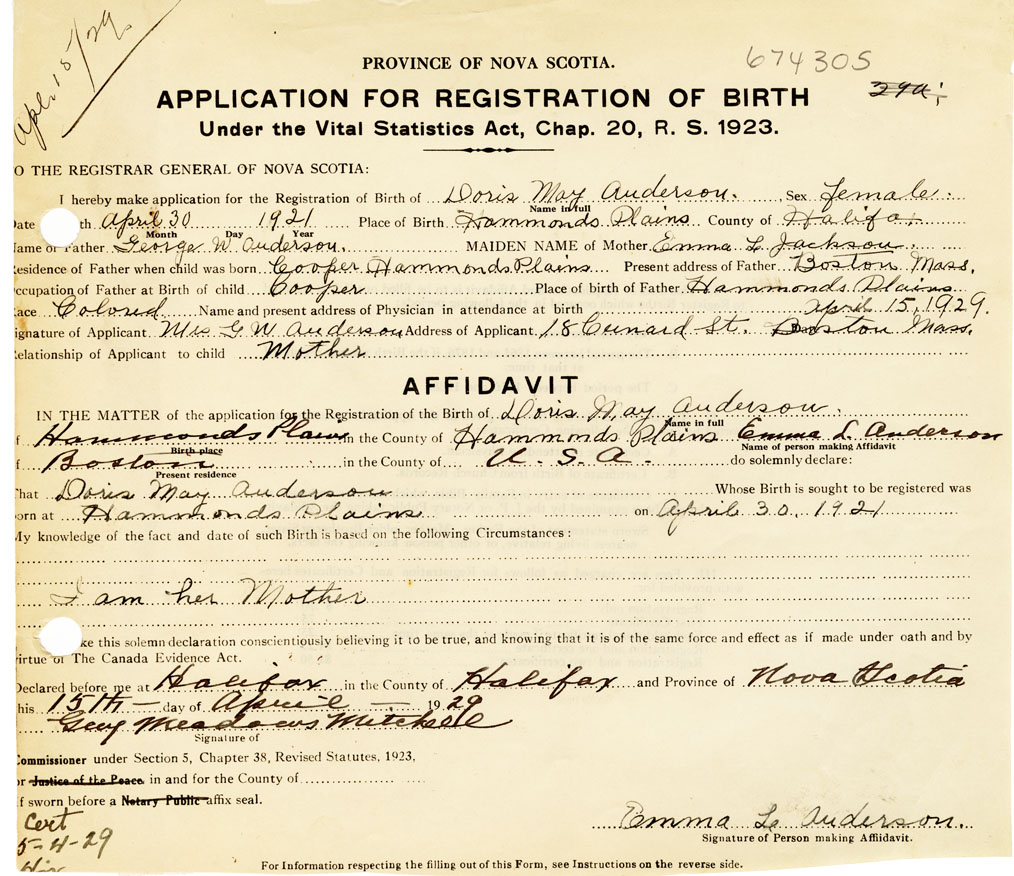 Apl. 15/29
PROVINCE OF NOVA SCOTIA.
674305
APPLICATION FOR REGISTRATION OF BIRTH
29a;
Under the Vital Statistics Act, Chap. 20, R. S. 1923.
O THE REGISTRAR GENERAL OF NOVA SCOTIA:
I hereby make application for the Registration of Birth of Doris May Anderson. Sex Female.
Name in full
Date th April 30 1921 Place of Birth Hammonds Plains County of Halifax.
Month Day Year
Name of Father George W. Anderson. MAIDEN NAME of Mother Emma L. Jackson.
esidence of Father when child was born Cooper Hammonds Plains Present address of Father Boston Mass.
ccupation of Father at Birth of child Cooper Place of birth of Father Hammonds Plains
ace Colored Name and present address of Physician in attendance at birth April 15, 1929.
ignature of Applicant Mrs G W Anderson Address of Applicant 18 Cunard St. Boston Mass.
elationship of Applicant to child Mother
AFFIDAVIT
IN THE MATTER of the application for the Registration of the Birth of Doris May Anderson.
Name in full
f Hammonds Plains in the County of Hammonds Plains Emma L. Anderson
Birth place Name of person making Affidavit
f Boston in the County of U. S. A. do solemnly declare:
Present residence
That Doris May Anderson Whose Birth is sought to be registered was
orn at Hammonds Plains on April 30, 1921
My knowledge of the fact and date of such Birth is based on the following Circumstances :
I am her Mother
ke this solemn declaration conscientiously believing it to be true, and knowing that it is of the same force and effect as if made under oath and by
virtue of The Canada Evidence Act.
Declared before me at Halifax in the County of Halifax and Province of Nova Scotia
his 15th day of April 1929
Guy Meadows Mitchell
Signature of
Commissioner under Section 5, Chapter 38, Revised Statutes, 1923,
or Justice of the Peace in and for the County of
f sworn before a Notary Public affix seal.
Cert
5-4-29
Emma L. Anderson.
Signature of Person making Affidavit.
For Information respecting the filling out of this Form, see Instructions on the reverse side.